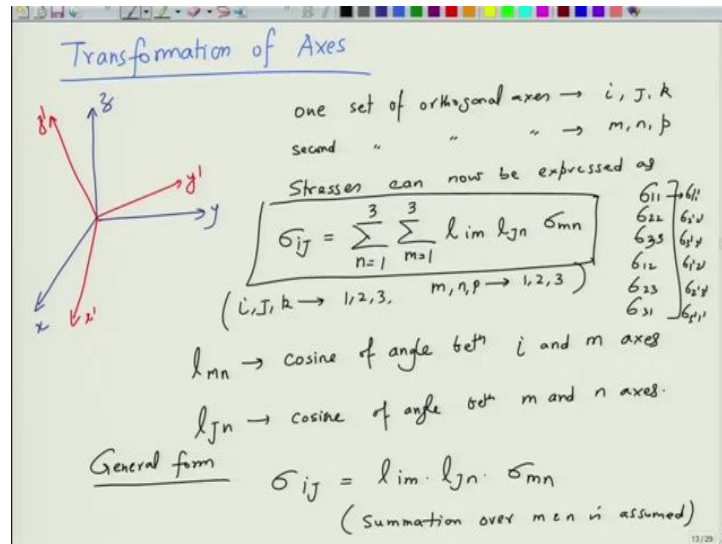 Transformation of Axes
z' z
y'
y
x x'
one set of orthogonal axes → i, J, k
second " " " → m, n, p
Stresses can now be expressed as
σiJ = 3 Σ n=1 3 Σ m=1 lim lJn σmn
(i,J,k → 1,2,3. m,n,p → 1,2,3)
σ11 → σ1'1'
σ22 σ2'2'
σ33 σ3'3'
σ12 σ1'2'
σ23 σ2'3'
σ31 σ3'1'
lmn → cosine of angle betn i and m axes
lJn → cosine of angle betn m and n axes.
General form σiJ = lim. lJn. σmn
(Summation over m & n is assumed)
13/29